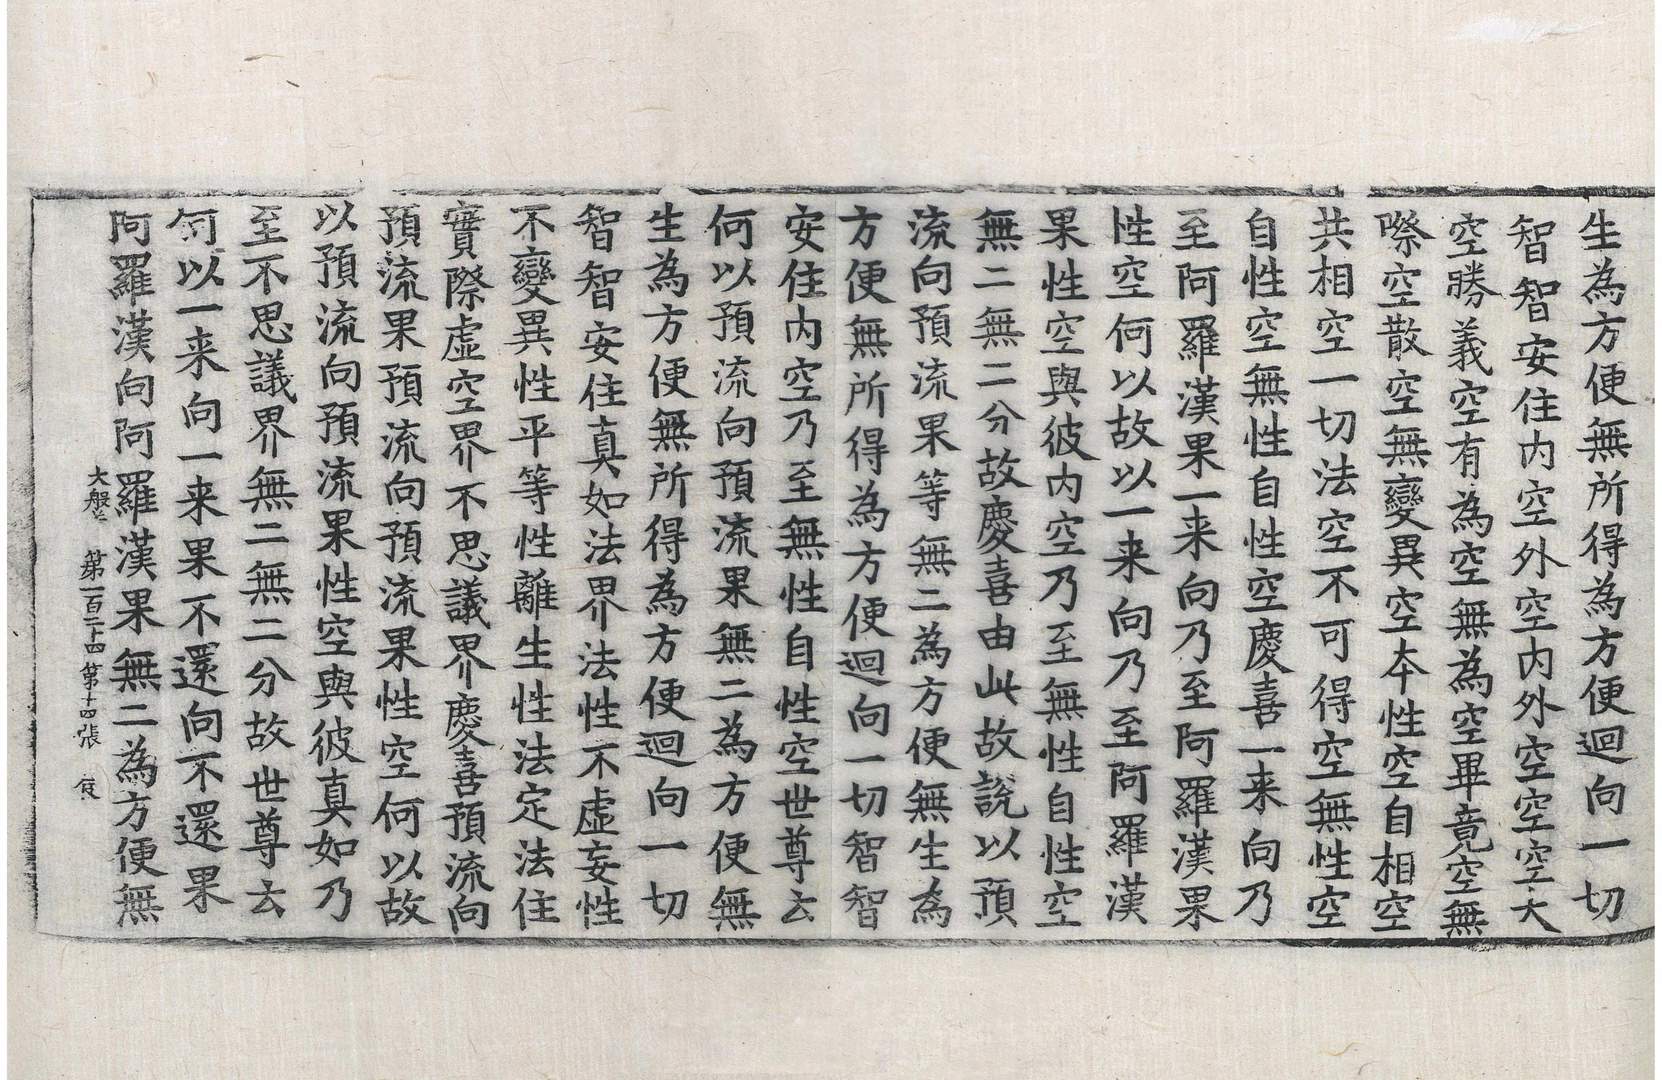 生為方便無所得為方便迴向一切
智智安住内空外空内外空空空大
空勝義空有為空無為空畢竟空無
際空散空無變異空本性空自相空
共相空一切法空不可得空無性空
自性空無性自性空慶喜一来向乃
至阿羅漢果一来向乃至阿羅漢果
性空何以故以一来向乃至阿羅漢
果性空與彼内空乃至無性自性空
無二無二分故慶喜由此故說以預
流向預流果等無二為方便無生為
方便無所得為方便迴向一切智智
安住内空乃至無性自性空世尊云
何以預流向預流果無二為方便無
生為方便無所得為方便迴向一切
智智安住真如法界法性不虛妄性
不變異性平等性離生性法定法住
實際虛空界不思議界慶喜預流向
預流果預流向預流果性空何以故
以預流向預流果性空與彼真如乃
至不思議界無二無二分故世尊云
何以一来向一来果不還向不還果
阿羅漢向阿羅漢果無二為方便無
大般 第一百二十四 第十四張